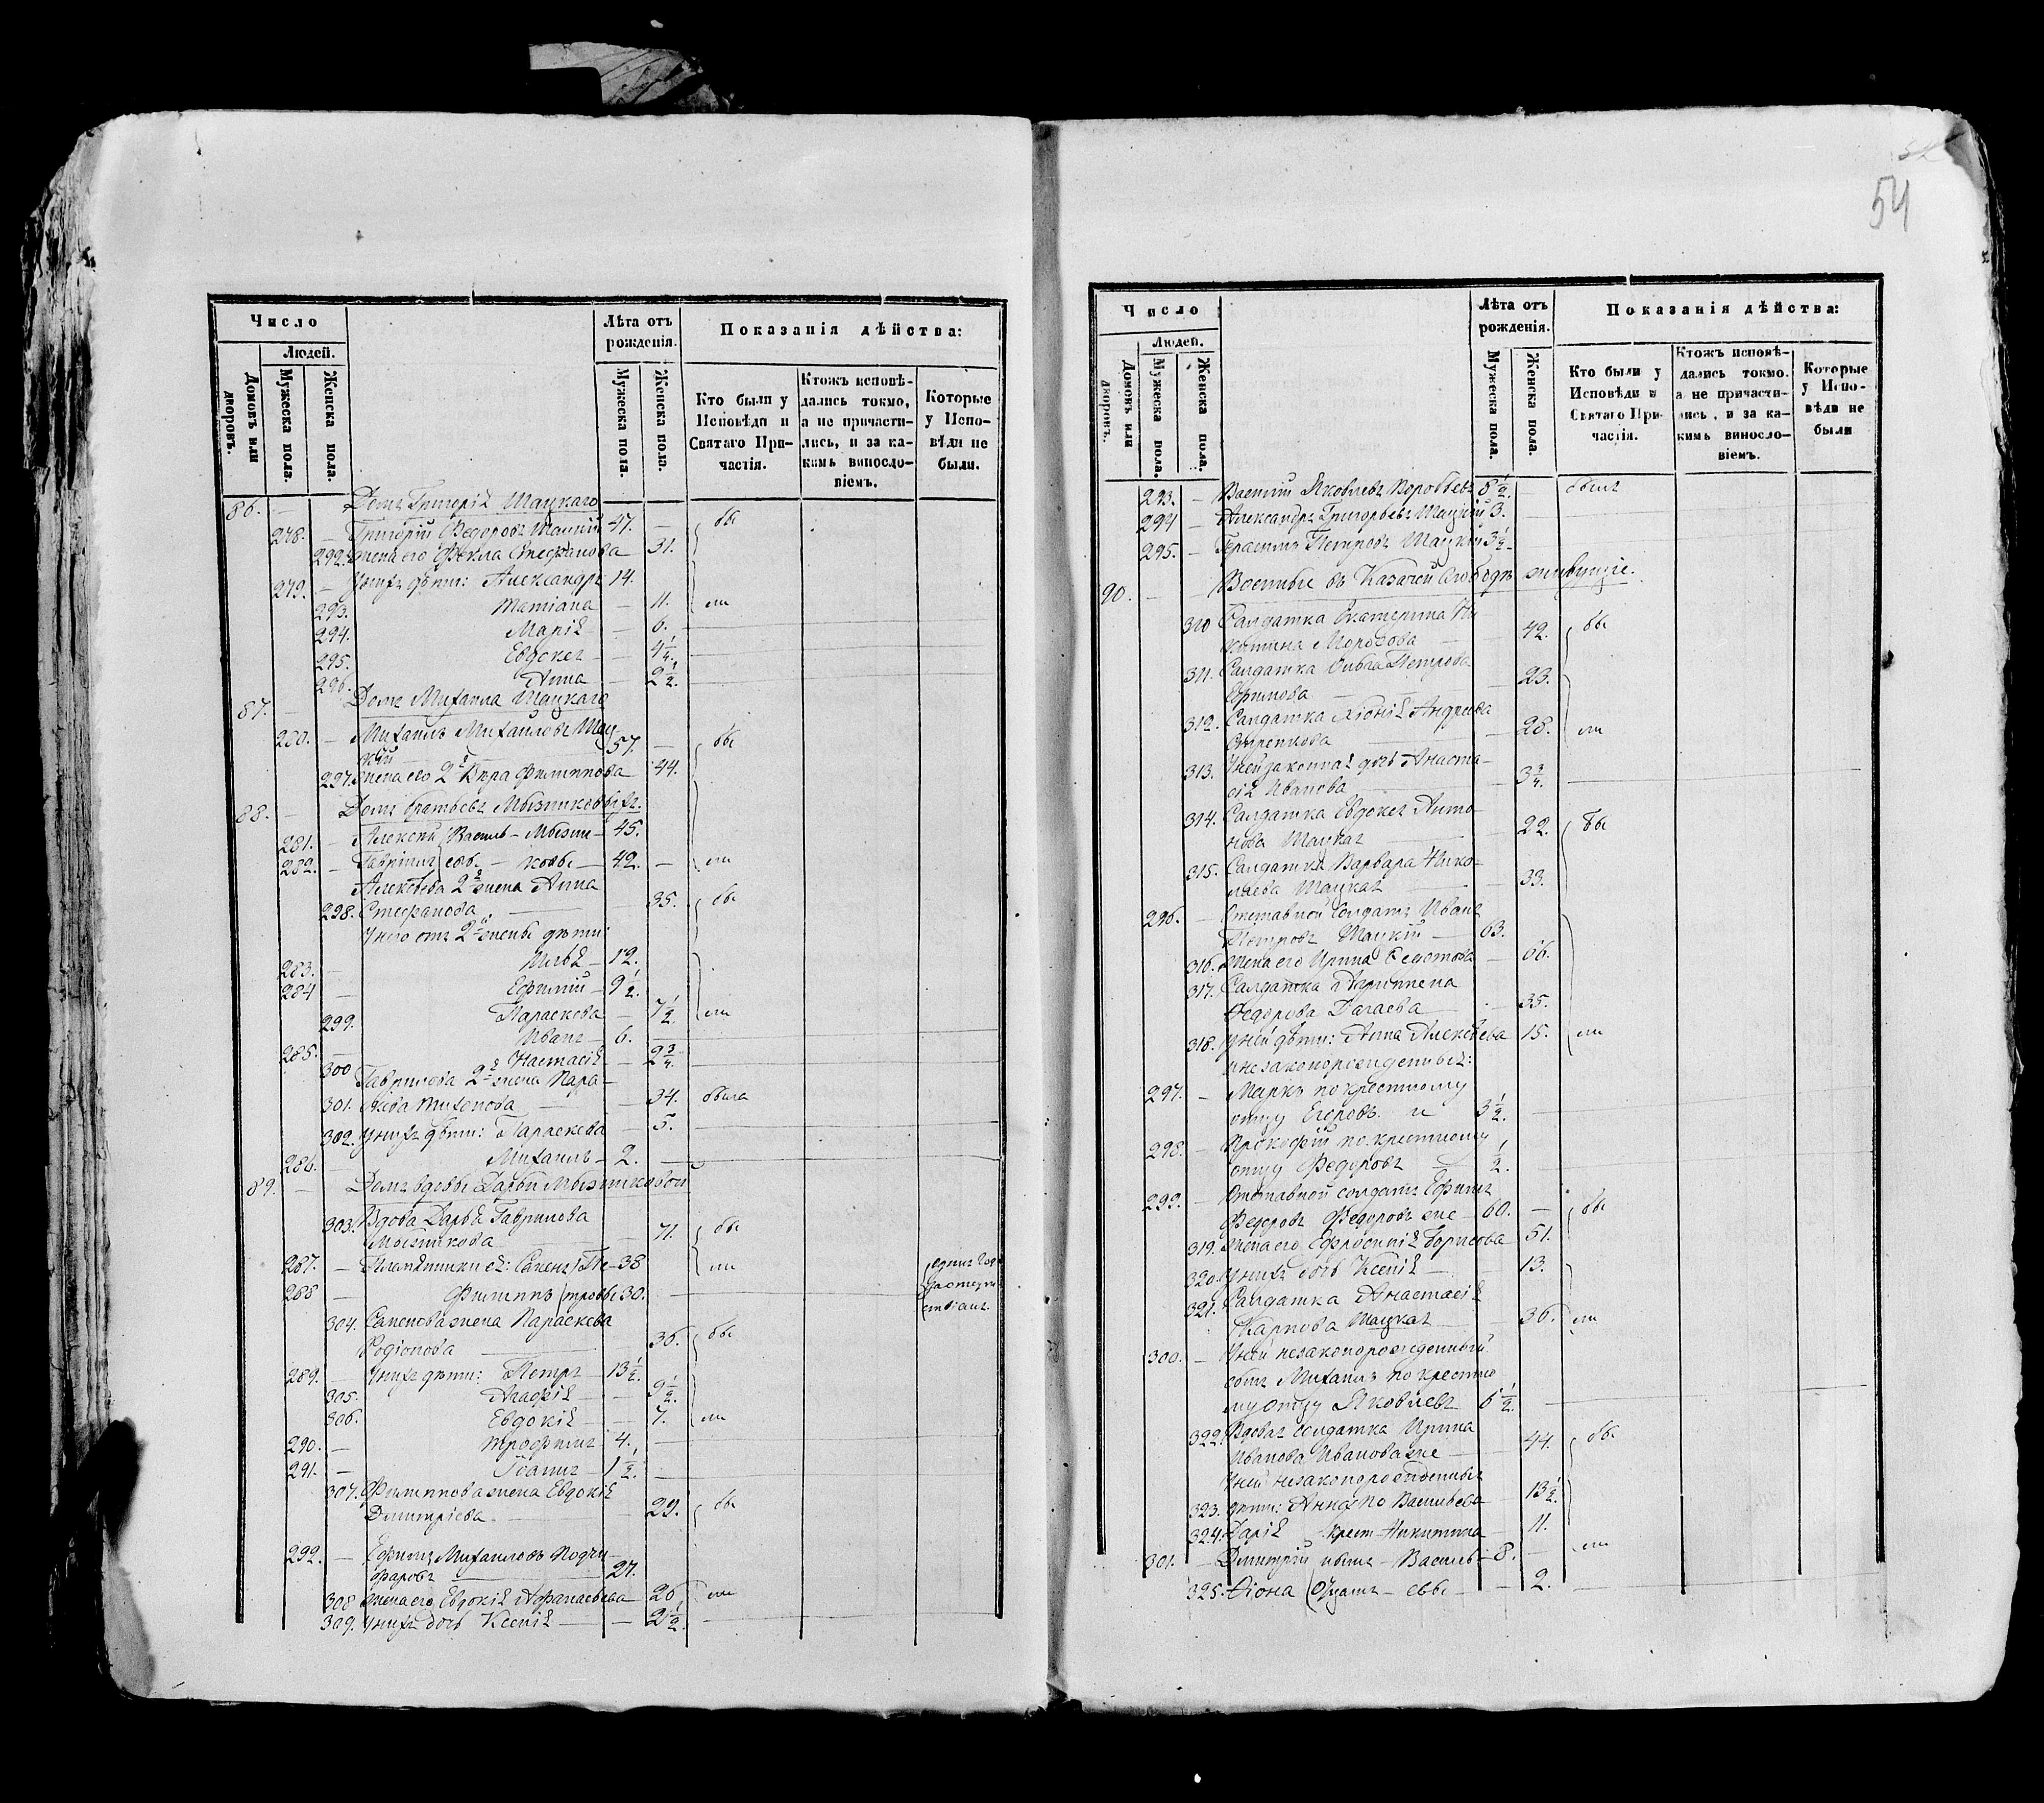 54
Число
Людей.
Домовъ или дворовъ.
Мужеска пола.
Женска пола.
Лѣта отъ рожденія.
Мужеска пола.
Женска пола.
Показанія дѣйства:
Кто были у Исповѣди и Святаго Причастія.
Ктожъ исповѣдались токмо, а не причастились, и за какимъ винословіемъ.
Которые у Исповѣди не были.
86. — Домъ Григорія Шацкаго
278. — Григорій Федоровъ Шацкій 47. — бы
292. жена его Фекла Стефанова — 31.
279. — У нихъ дѣти: Александръ 14.
293. Татіана — 11. ли
294. Марія — 6.
295. Евдокея — 4 1/4.
296. Анна — 2 1/2.
87. — Домъ Михаила Шацкаго
280. — Михаилъ Михайловъ Шац
кій — 57. — бы
297. жена его 2я Вѣра Филиппова — 44.
88. — Домъ братьевъ Мызниковыхъ.
281. — Алексѣй Василь – Мызни – 45.
282. — Гавріилъ евы – ковы – 42. — ли
Алексѣева 2я жена Анна
298. Стефанова — 35. бы
У него отъ 2й жены дѣти:
283. — Илья – 12.
284 — Ефимій – 9 1/2.
299. Параскева — 7 1/2. ли
285. — Иванъ – 6.
300 Настасія — 2 3/4.
Гаврилова 2я жена Пара-
301. скева Тихонова — 34. была
302. У нихъ дѣти: Параскева — 5.
286. — Михаилъ – 2.
89. — Домъ вдовы Дарьи Мызниковой
303. Вдова Дарья Гаврилова
Мызникова — 71. бы
287. — Племянники ея: Семенъ Пе – 38 ли
288 — Филиппъ тровы 30.
304. Семенова жена Параскева
Родіонова — 36. бы
289. — У нихъ дѣти: Петръ – 13 1/2.
305. Агафія — 9 1/2.
306. Евдокія — 7. ли
290. — Трофимъ 4.
291. — Іоаннъ – 1 1/2.
307. Филиппова жена Евдокія
Дмитріева — 29. бы
292. — Ефимъ Михаиловъ
27.
308 жена его Евдокія Афанасьева — 26. ли
309. У нихъ дочь Ксенія — 2 1/2.
Число
Людей.
Домовъ или дворовъ.
Мужеска пола.
Женска пола.
Лѣта отъ рожденія.
Мужеска пола.
Женска пола.
Показанія дѣйства:
Кто были у Исповѣди и Святаго Причастія.
Ктожъ исповѣдались токмо, а не причастились, и за какимъ винословіемъ.
Которые у Исповѣди не были
293. — Василій Яковлевъ Воробьевъ 8 1/2. — былъ
294 — Александръ Григорьевъ Шацкій 3.
295. — Герасимъ Петровъ Шацкій 3 1/2
90. — Военные въ Казачей Слободѣ живущіе.
310 Салдатка Екатерина Ни
китина Морозова — 42. бы
311. Салдатка Ольга Петрова
Ефимова — 23.
312. Салдатка Андреева
— 28. ли
313. У ней законная дочь Анаста-
сія Иванова — 3 3/4.
314. Салдатка Евдокея Анто-
нова Шацкая — 22. бы
315. Салдатка Варвара Нико-
лаева Шацкая — 33.
296. — Отставной солдатъ Иванъ
Петровъ Шацкій — 63.
316. Жена его Ирина Федотова — 66.
317. Салдатка Агриппена
Федорова — 35.
318. У ней дѣти: Анна Алексѣева 15. ли
и незаконорожденные:
297. — Маркъ по крестному
отцу Егоровъ и 3 1/2.
298. — Прокофій по крестному
отцу Федоровъ — 1/2.
299. — Отставной солдатъ Ефимъ
Федоровъ Федоровъ же – 60. — бы
319. Жена его Ефросинія Борисова 51.
320. У нихъ дочь Ксенія — 13.
321. Салдатка Анастасія
Карпова Шацкая — 36. ли
300. — У ней незаконорожденный
сынъ Михаилъ по крестно
му отцу Яковлевъ 6 1/2.
322. Вдовая солдатка Ирина
Иванова Иванова же — 44. бы
У ней незаконорожденные
323. дѣти: Анна по Васильева — 13 1/2.
324. Дарія – крест – Никитина — 11.
301. — Дмитрій нымъ – Василь – 8. — ли
325. Ѳіона отцамъ – евы — 2.